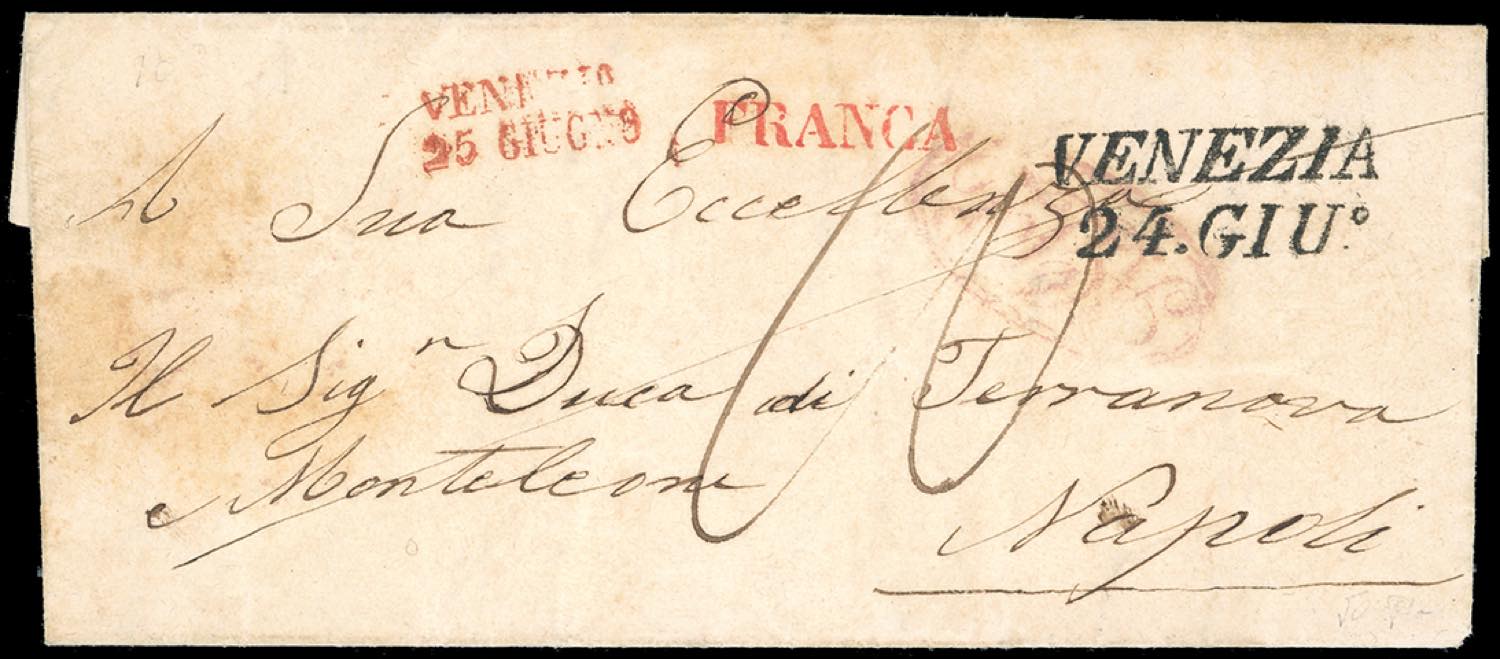 VENEZIA
25 GIUGNO
FRANCA
VENEZIA
24.GIU°
A Sua Eccellenza
Il Sigr Duca di Terranova
e Monteleone
Napoli